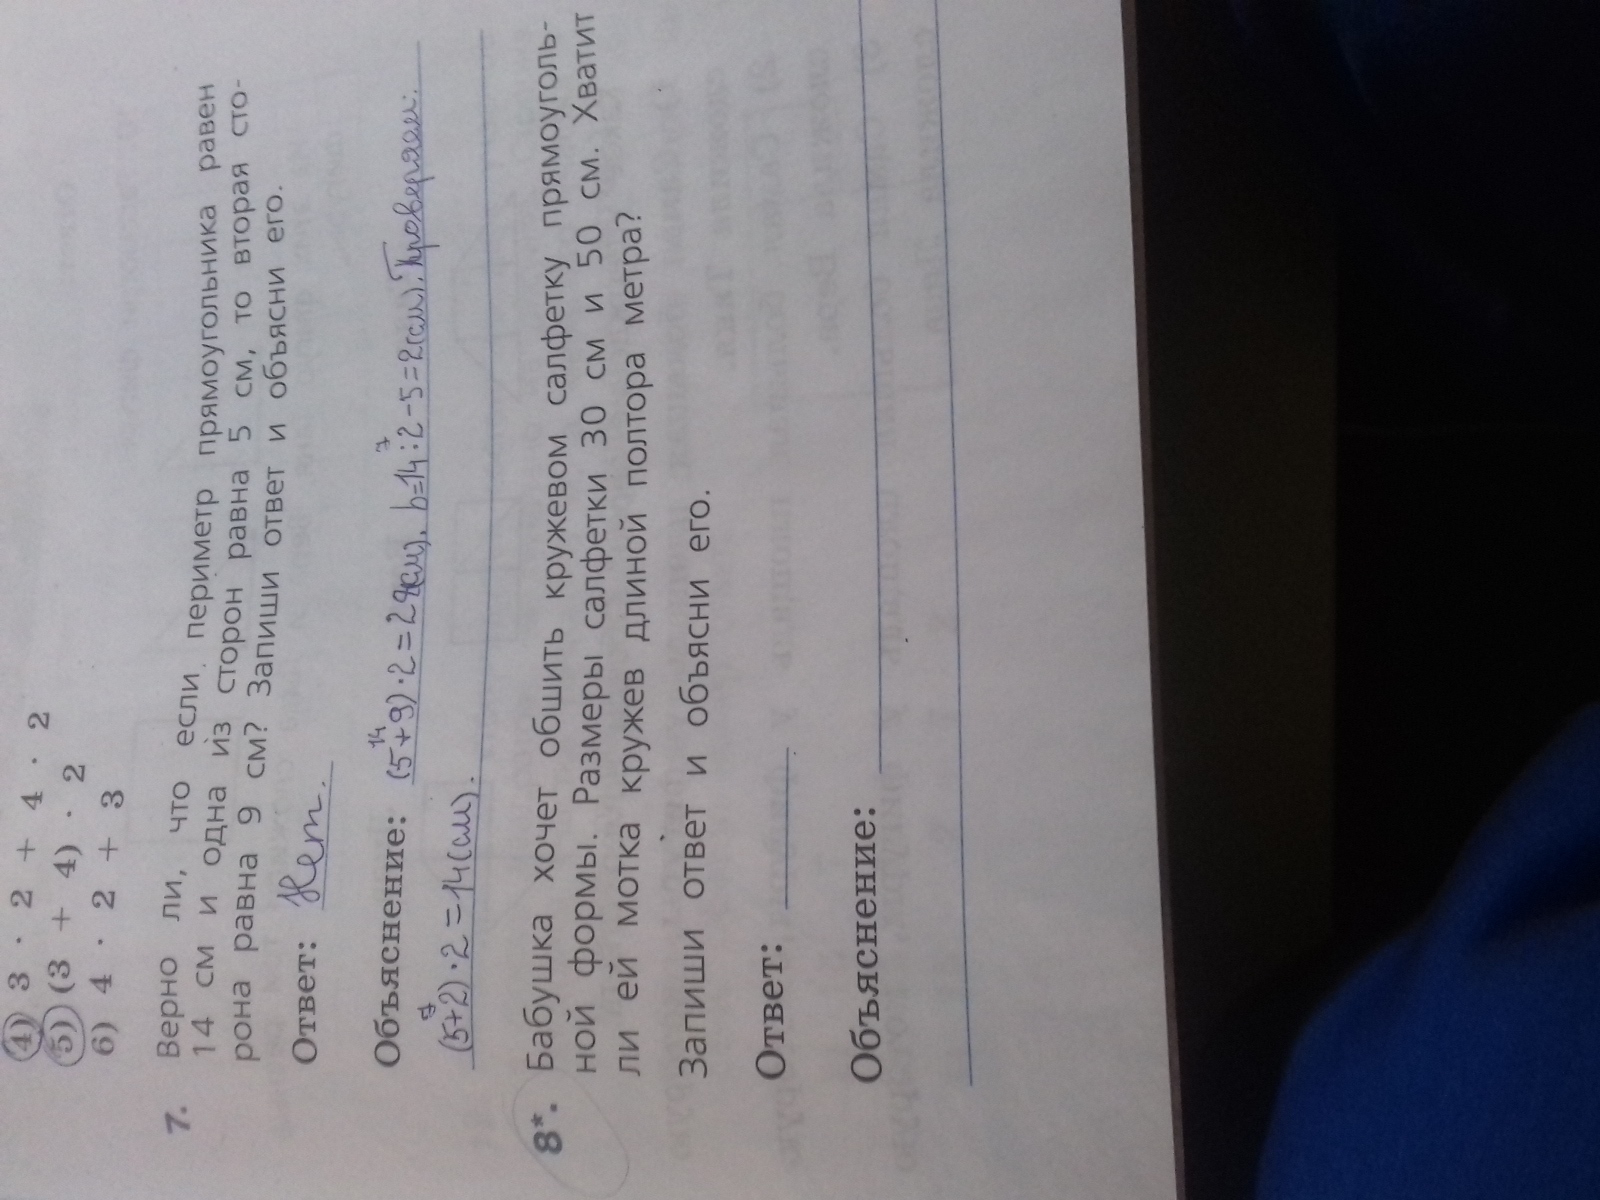 4) 3 · 2 + 4 · 2
5) (3 + 4) · 2
6) 4 · 2 + 3
7. Верно ли, что если периметр прямоугольника равен
14 см и одна из сторон равна 5 см, то вторая сто-
рона равна 9 см? Запиши ответ и объясни его.
Ответ: Нет.
Объяснение: (5+9)·2=28(см), b=14:2-5=2(см). Проверяем:
(5+2)·2=14(см).
8*. Бабушка хочет обшить кружевом салфетку прямоуголь-
ной формы. Размеры салфетки 30 см и 50 см. Хватит
ли ей мотка кружев длиной полтора метра?
Запиши ответ и объясни его.
Ответ:
Объяснение: